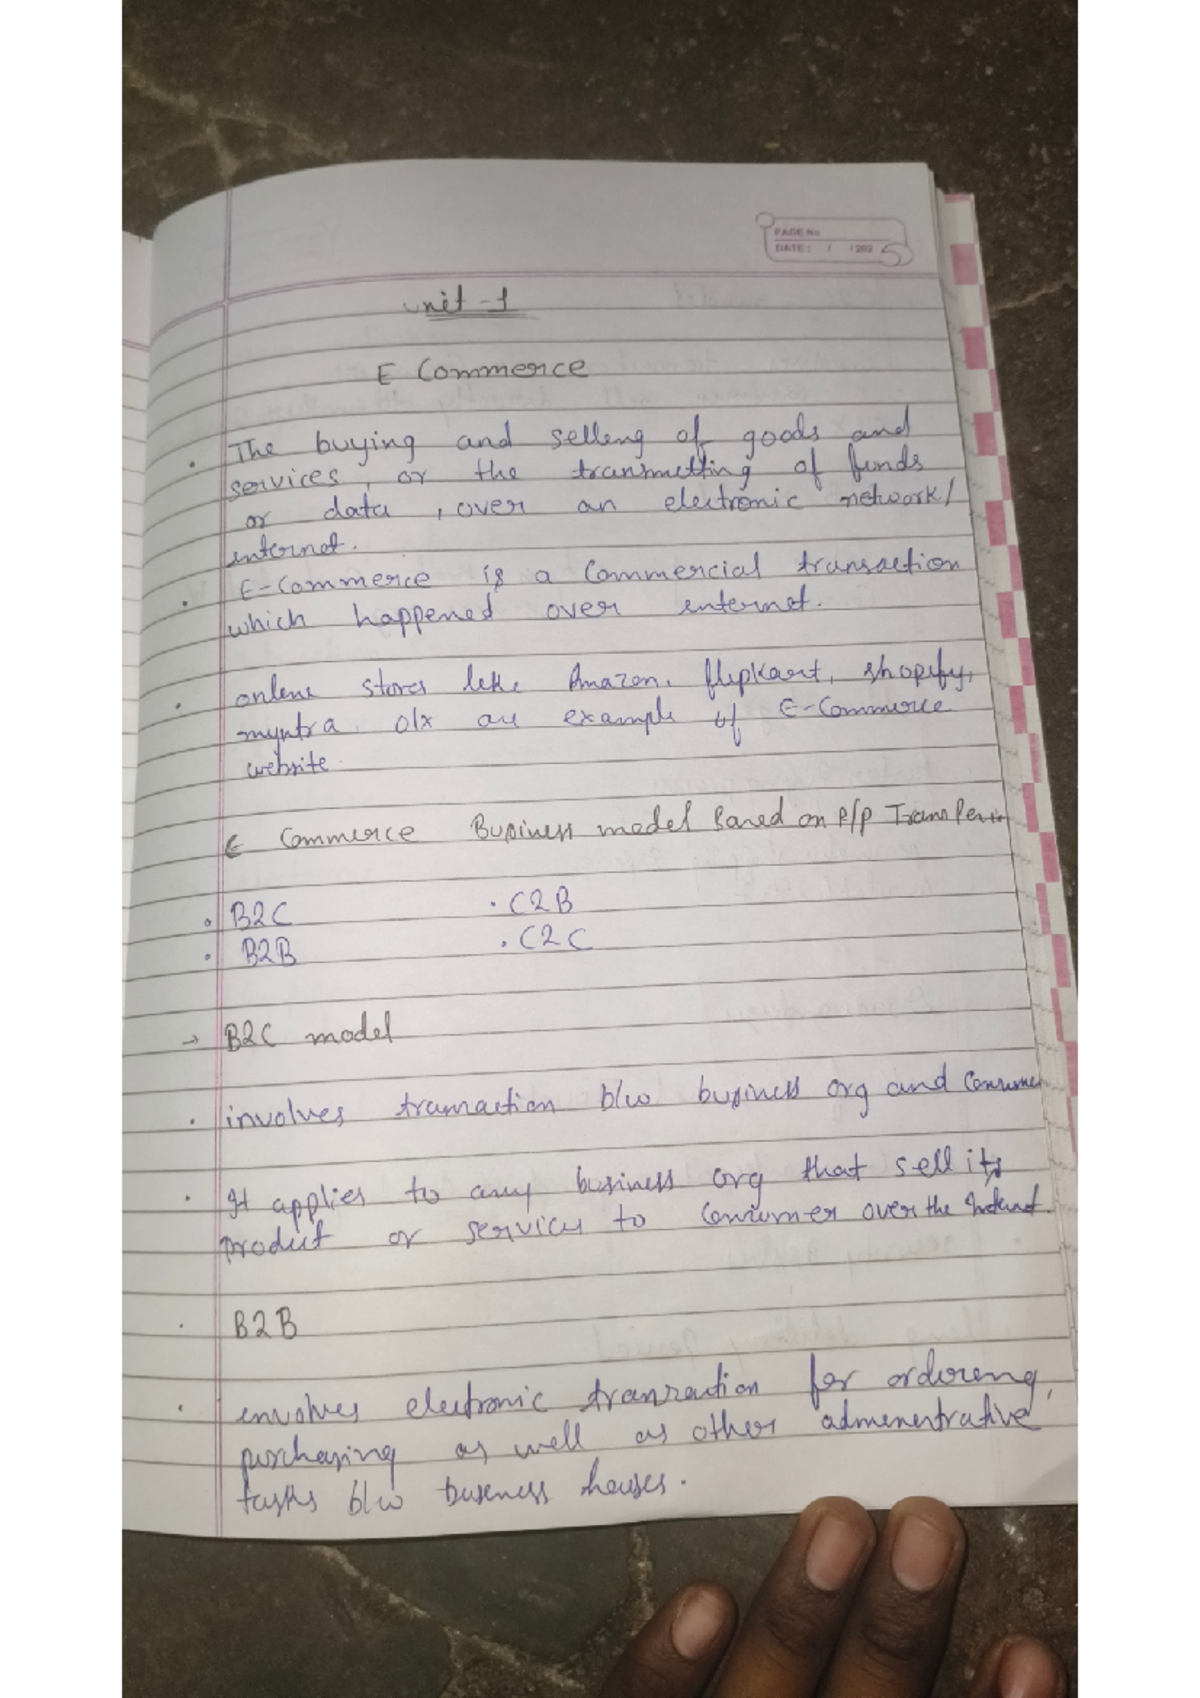 PAGE No
DATE: / /202 5
Unit -1
E Commerce
• The buying and selleng of goods and
services, or the transmetting of funds
or data, over an electronic network/
internet.
• E-Commerce is a Commercial transaction
which happened over enternet.
• onlene stores leke Amazon, flepkart, shopify,
myntra. olx are example of E-Commerce
website.
E Commerce Business model Based on
• B2C • C2B
• B2B • C2C
→ B2C model
• involves transaction b/w business org and Consumer
• It applies to any business org that sell its
product or services to Consumer over the Internet.
• B2B
• envolves electronic transaction for ordereng,
purchasing as well as other admenestrative
tasks b/w buseness houses.